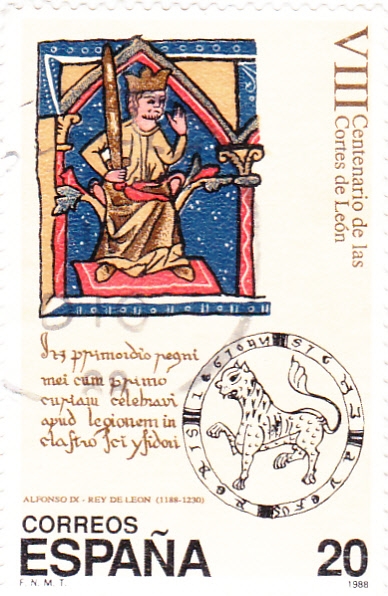 VIII Centenario de las
Cortes de León
In primordio regni
mei cum primo
curiam celebravi
apud legionem in
clastro sci ysidori
ALFONSO IX - REY DE LEON (1188-1230)
CORREOS
ESPAÑA 20
F. N. M. T. 1988